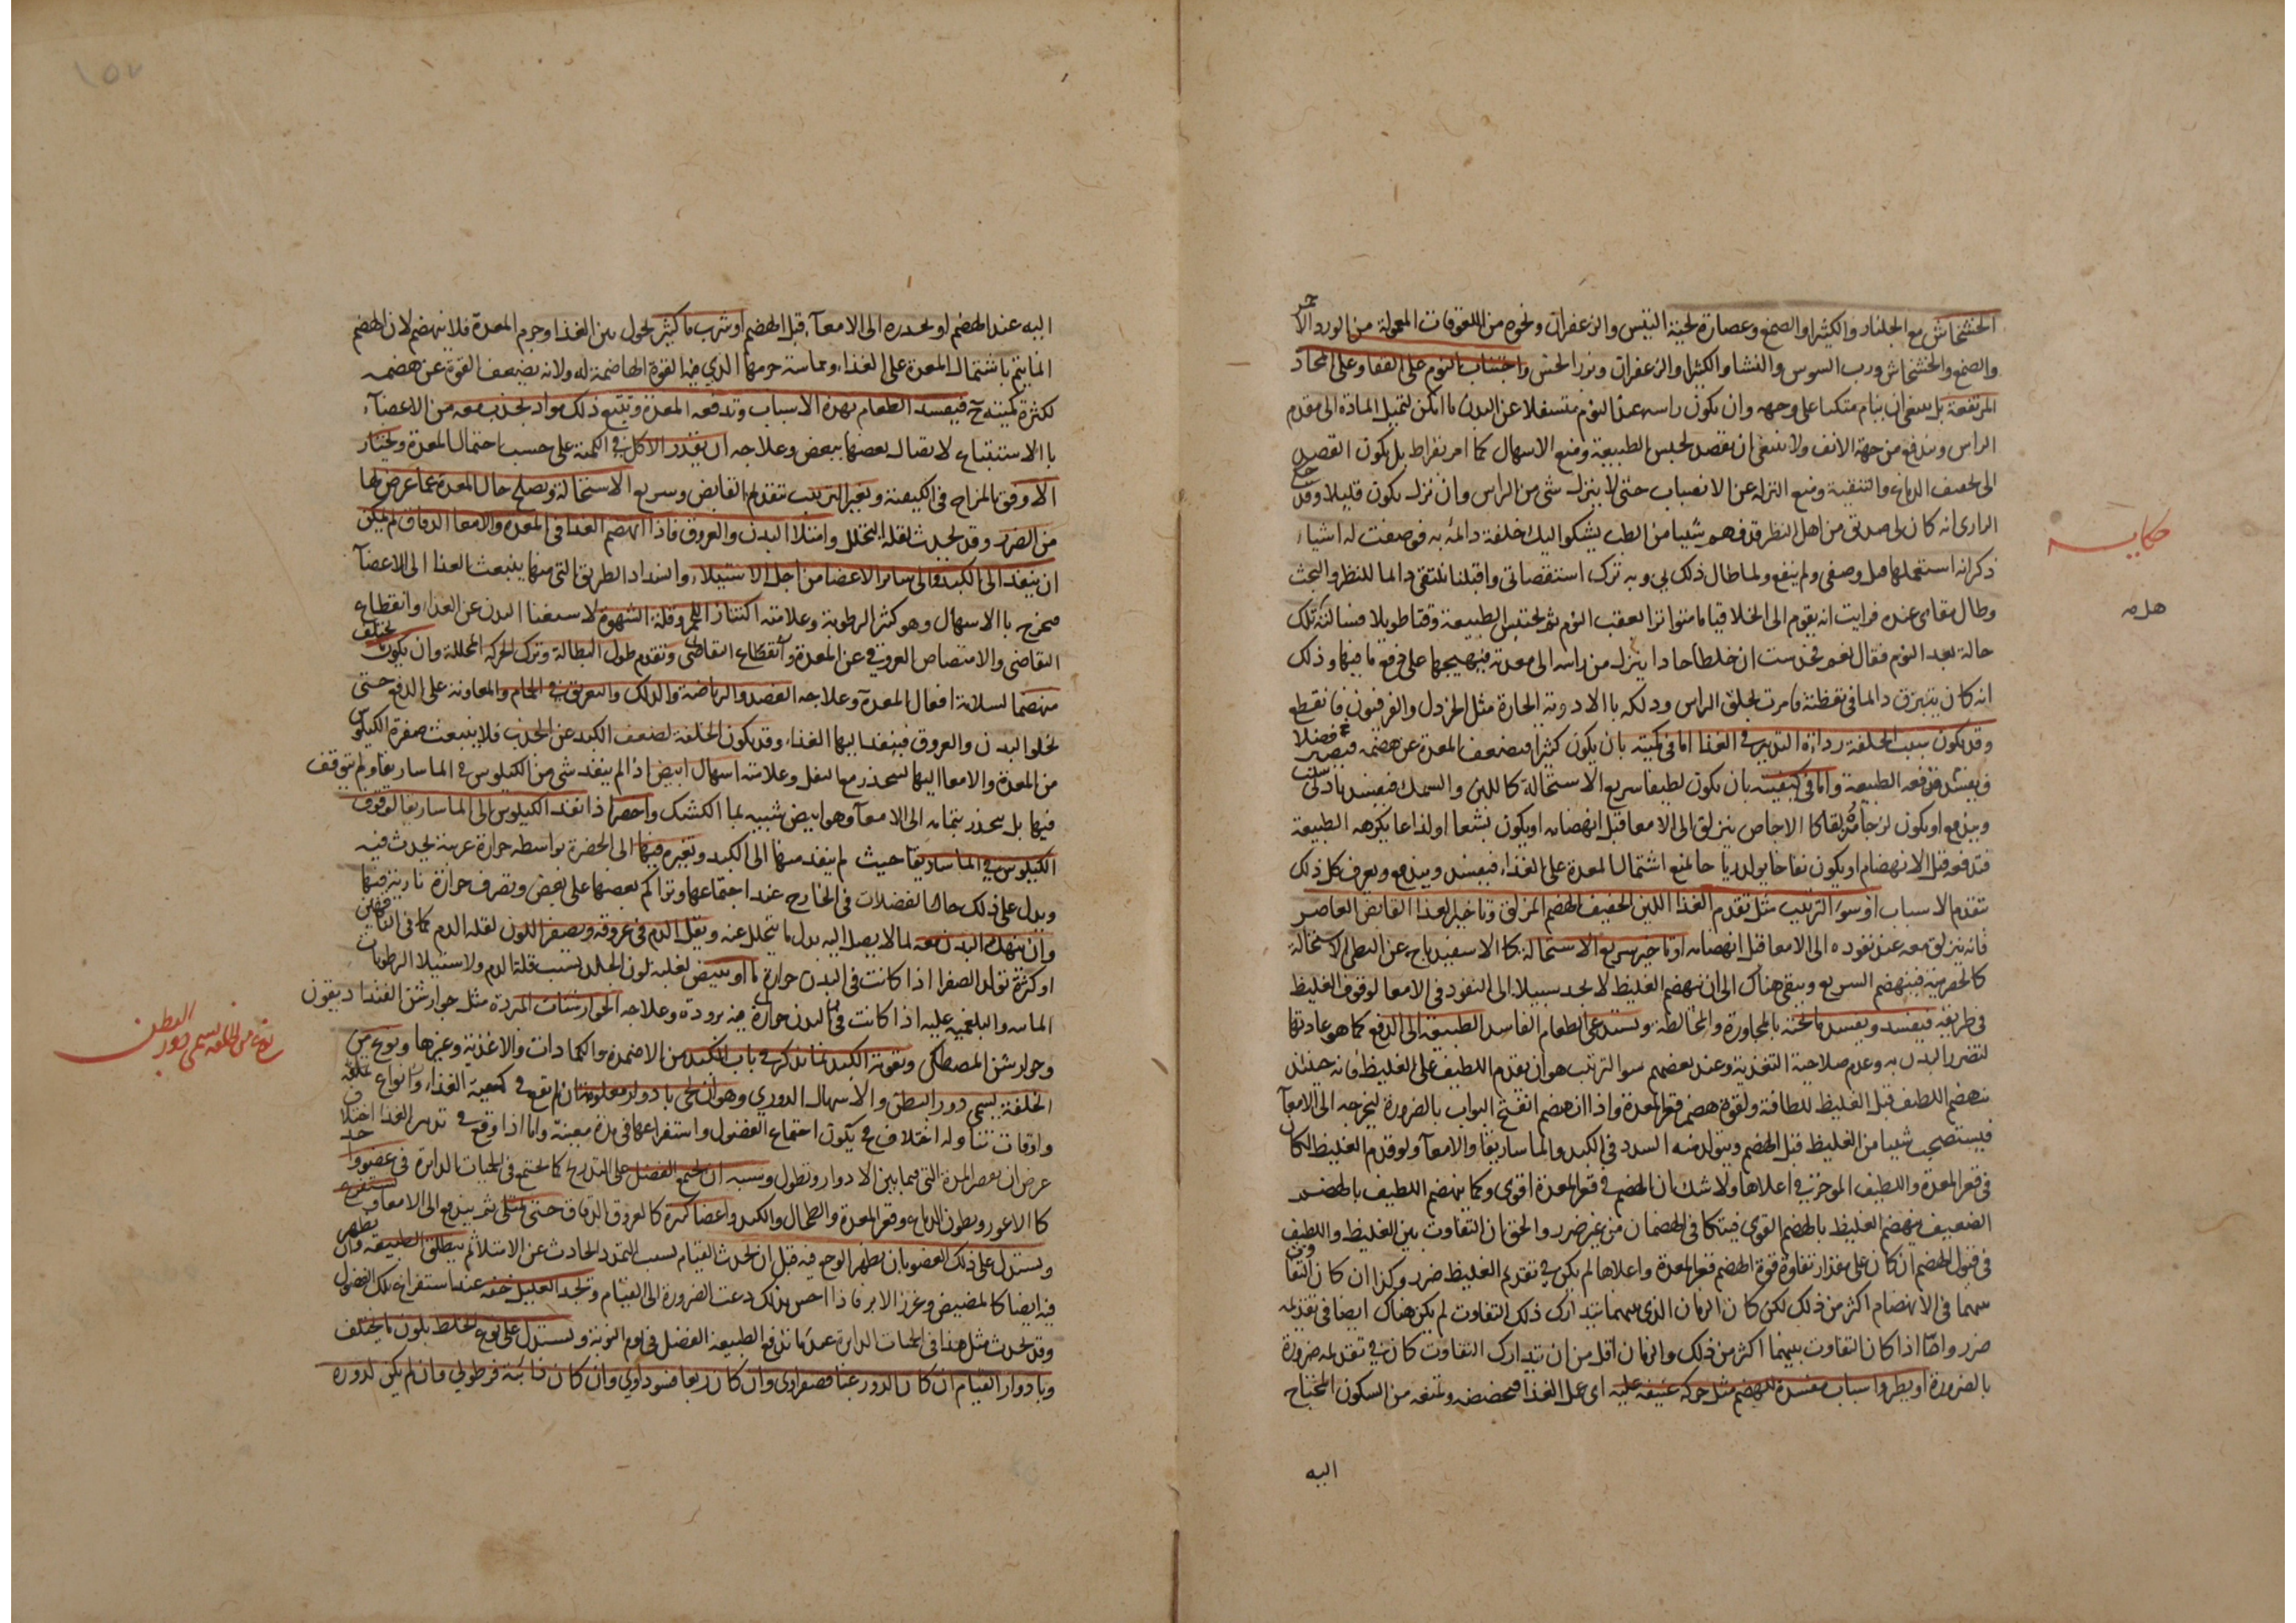 الخشخاش مع الجلنار والكثيرا والصمغ وعصارة لحية التيس والزعفران ونحوه من اللعوقات المعمولة من الورد الاحمر
والصمغ والخشخاش ورب السوس والنشا والكثيرا والزعفران وبزر الخس واجتناب النوم على القفا وعلى المخاد
المرتفعة بل ينبغى ان ينام متكبا على وجهه وان يكون راسه عند النوم متسفلا عن البدن ما امكن لتميل المادة الى مقدم
الراس ويندفع من جهة الانف ولا ينبغى ان يقصد لحبس الطبيعة ومنع الاسهال كما امر بقراط بل يكون القصد
الى تجفيف الدماغ والتنقية ومنع النزلة عن الانصباب حتى لا ينزل شى من الراس وان نزل يكون قليلا وقد حكى
الرازى انه كان لى صديق من اهل النظر قد فهم شيئا من الطب يشكو اليك خلفة دائمة به فوصفت له اشياء
حكاية
ذكر انه استعملها مثل وصفى ولم ينفع ولما طال ذلك بى وبه ترك استقصائى واقبلنا نلتقى دائما للنظر والبحث
وطال مقامى عنده فرايت انه يقوم الى الخلا قياما متواترا بعقب النوم ثم يحتبس الطبيعة وقتا طويلا فسالته تلك
حالة بعد النوم فقال نعم فحدست ان خلطا حادا ينزل من راسه الى معدته فيهيجها على دفع ما فيها وذلك
انه كان يتبزق دائما فى يقظته فامرت بحلق الراس ودلكه بالادوية الحارة مثل الخردل والفرفيون فانقطع
وقد يكون سبب الخلفة رداءة التدبير فى الغذا اما فى كميته بان يكون كثيرا فيضعف المعدة عن هضمه فيصير فضلا
ويفسد فتدفعه الطبيعة واما فى كيفيته بان يكون لطيفا سريع الاستحالة كاللبن والسمك فيفسد بادنى سبب
ويندفع او يكون لزجا مزلقا كالاجاص ينزلق الى الامعا قبل انهضامه او يكون بشعا او لذاعا يكرهه الطبيعة
فتدفعه قبل الانهضام او يكون نفاخا يولد رياحا تمنع اشتمال المعدة على الغذاء فيفسد ويندفع ويعرف كل ذلك
بتقدم الاسباب او سوء الترتيب مثل تقدم الغذا اللين الخفيف الهضم المزلق وتاخير الغذا القابض العاصر
فانه ينزلق معه عند نفوذه الى الامعا قبل انهضامه او تاخير سريع الاستحالة كالاسفيدباج عن البطى الاستحالة
كالحصرمية فينهضم السريع ويبقى هناك الى ان ينهضم الغليظ لا يجد سبيلا الى النفوذ فى الامعا لوقوف الغليظ
فى طريقه فيفسد ويفسد ما تحته بالمجاورة والمخالطة ويستدعى الطعام الفاسد الطبيعة الى الدفع كما هو عادتها
لتضرر البدن به وعدم صلاحية التغذية وعند بعضهم سوء الترتيب هو ان يقدم اللطيف على الغليظ فانه حينئذ
ينهضم اللطيف قبل الغليظ للطافته ولقوة هضم قعر المعدة واذا انهضم انفتح البواب بالضرورة ليخرجه الى الامعآ
فيستصحب شيئا من الغليظ قبل الهضم ويتولد منه السدد فى الكبد والماساريقا والامعآ ولو قدم الغليظ لكان
فى قعر المعدة واللطيف الموخر فى اعلاها ولا شك ان الهضم فى قعر المعدة اقوى وكما ينهضم اللطيف بالهضم
الضعيف ينهضم الغليظ بالهضم القوى فيتكافى الهضمان من غير ضرر والحق ان التفاوت بين الغليظ واللطيف
فى قبول الهضم ان كان على مقدار تفاوت قوة الهضم قعر المعدة واعلاها لم يكن فى تقديم الغليظ ضرر وكذا ان كان التفاوت
بينهما فى الانهضام اكثر من ذلك لكن كان الزمان الذى بينهما يتدارك ذلك التفاوت لم يكن هناك ايضا فى تقديمه
ضرر واما اذا كان التفاوت بينهما اكثر من ذلك والزمان اقل من ان يتدارك التفاوت كان فى تقديمه ضرورة
بالضرورة او يطروا سباب مفسدة للهضم مثل حركة عنيفة عليه اى على الغذا فتخضخضه وتمنعه من السكون المحتاج
اليه
اليه عند الهضم او تحدره الى الامعآء قبل الهضم او شرب ما كثير يحول بين الغذا وجرم المعدة فلا ينهضم لان الهضم
انما يتم باشتمال المعدة على الغذاء ومماسته جرمها الذي فيه القوة الهاضمة له ولانه يضعف القوة عن هضمه
لكثرة كميته فيفسد الطعام بهذه الاسباب وتدفعه المعدة ويتبع ذلك مواد تجذب معه من الاعضآء
بالاستتباع لاتصال بعضها ببعض وعلاجه ان يقدر الاكل فى الكمية على حسب احتمال المعدة ويختار
الاوفق بالمزاج فى الكيفية ويغير الترتيب بتقديم القابض وسريع الاستحالة ويصلح حال المعدة عما عرض لها
من الضرر وقد تحدث لقلة التحلل وامتلاء البدن والعروق فاذا انهضم الغذا فى المعدة والامعا الدقاق لم يمكن
ان ينفذ الى الكبد والى سائر الاعضا من اجل الامتلاء وانسداد الطريق التى منها ينبعث الغذا الى الاعضآ
فيخرج بالاسهال وهو كثير الرطوبة وعلامته اكتناز اللحم وقلة الشهوة لاستغنا البدن عن الغذاء وانقطاع
التقاضى والامتصاص العروق عن المعدة وانقطاع التقاضى وتقدم طول البطالة وترك الحركة المحللة وان يكون ما يختلف
منهضما لسلامة افعال المعدة وعلاجه الفصد والرياضة والدلك والتعريق فى الحمام والمعاونة على الدفع حتى
تخلو البدن والعروق فينفذ اليها الغذاء وقد يكون الخلفة لضعف الكبد عن الجذب فلا ينبعث صفوة الكيلوس
من المعدة والامعا اليها لينحدر مع الثفل وعلامته اسهال ابيض اذا لم ينفذ شى من الكيلوس فى الماساريقا ولم يتوقف
فيها بل ينحدر بتمامه الى الامعآ وهو ابيض شبيه بماء الكشك واخضر اذا نفذ الكيلوس الى الماساريقا لوقوف
الكيلوس فى الماساريقا حيث لم ينفذ منها الى الكبد وتغيره فيها الى الخضرة بواسطة حرارة غريبة تحدث فيه
ويدل على ذلك حال الفضلات فى الخارج عند اجتماعها وتراكم بعضها على بعض وتصرف حرارة نارية فيها
وان ينهك البدن معه لما لا يصل اليه بدل ما يتحلل عنه ويقل الدم فى عروقه ويصفر اللون لقلة الدم كما فى الناقهين
او كثرة تولد الصفرا اذا كانت فى البدن حرارة ما او يبيض لغلبة لون الجلد بسبب قلة الدم ولاستيلا الرطوبات
المائية والبلغمية عليه اذا كانت فى البدن حرارة فيه برودة وعلاجه الجوارشنات المبردة مثل جوارشن الفنداديقون
وجوارشن المصطكى وتقوية الكبد بما يذكر فى باب الكبد من الاضمدة والكمادات والاغذية وغيرها ونوع من
نوع من الخلفة يسمى دور البطن
الخلفة يسمى دور البطن والاسهال الدوري وهو ان يجئ بادوار معلومة ان لم يقع فى كمية الغذاء وانواع مختلفة
واوقات تناوله اختلاف يكون اجتماع الفضول واستفراغها فى مدة معينة واما اذا وقع فى تدبير الغذا اختلاف
عرض ان يقصر المدة التى فيما بين الادوار وتطول وسببه ان يجتمع الفضل على التدريج كما يجتمع فى الحميات الدائرة فى عضو واحد
كالاعور وبطون الدماغ وقعر المعدة والطحال والكبد واعضا كثيرة كالعروق الدقاق حتى تمتلى ثم يندفع الى الامعا ويستفرغ
ويستدل على ذلك العضو بان يظهر الوجع فيه قبل ان تحدث القيام بسبب التمدد الحادث عن الامتلا ثم ينطلق الطبيعة وان يظهر
فيه ايضا كالمضيض وغرز الابر فاذا احس بذلك دعت الضرورة الى القيام وتجد العليل خفة عند استفراغ تلك الفضول
وقد تحدث مثل هذا فى الحميات الدائرة عند ما تدفع الطبيعة الفضل فى يوم النوبة ويستدل على نوع الخلط بلون ما يختلف
وبادوار القيام ان كان الدور غبا فصفراوى وان كان ربعا فسوداوي وان كان نائبة فرطوبي وان لم يكن لدوره